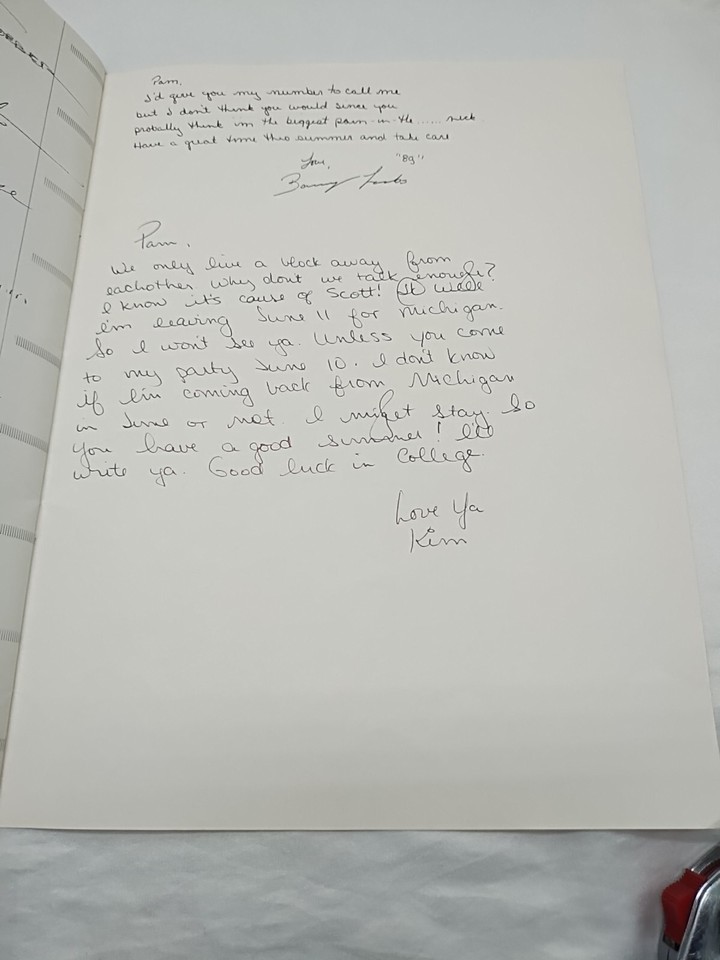 Pam,
I'd give you my number to call me
but I don't think you would since you
probably think im the biggest pain-in-the...... neck
Have a great time this summer and take care
Love,
"89"
Pam,
We only live a block away from
eachother. Why dont we talk enough?
I know it's cause of Scott!
I'm leaving June 11 for Michigan.
So I won't see ya. Unless you come
to my party June 10. I don't know
if I'm coming back from Michigan
in June or not. I might stay. So
you have a good summer! I'll
write ya. Good luck in College.
Love Ya
Kim